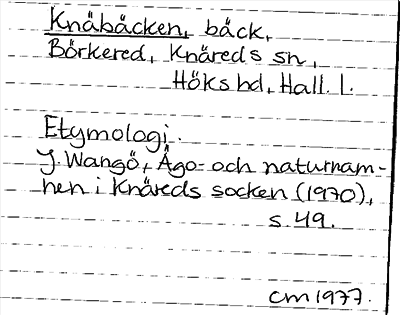 Knäbäcken, bäck,
Börkered, Knäreds sn,
Höks hd, Hall. l.
Etymologi.
J. Wangö, Ägo- och naturnam-
nen i Knäreds socken (1970),
s. 49.
cm 1977.